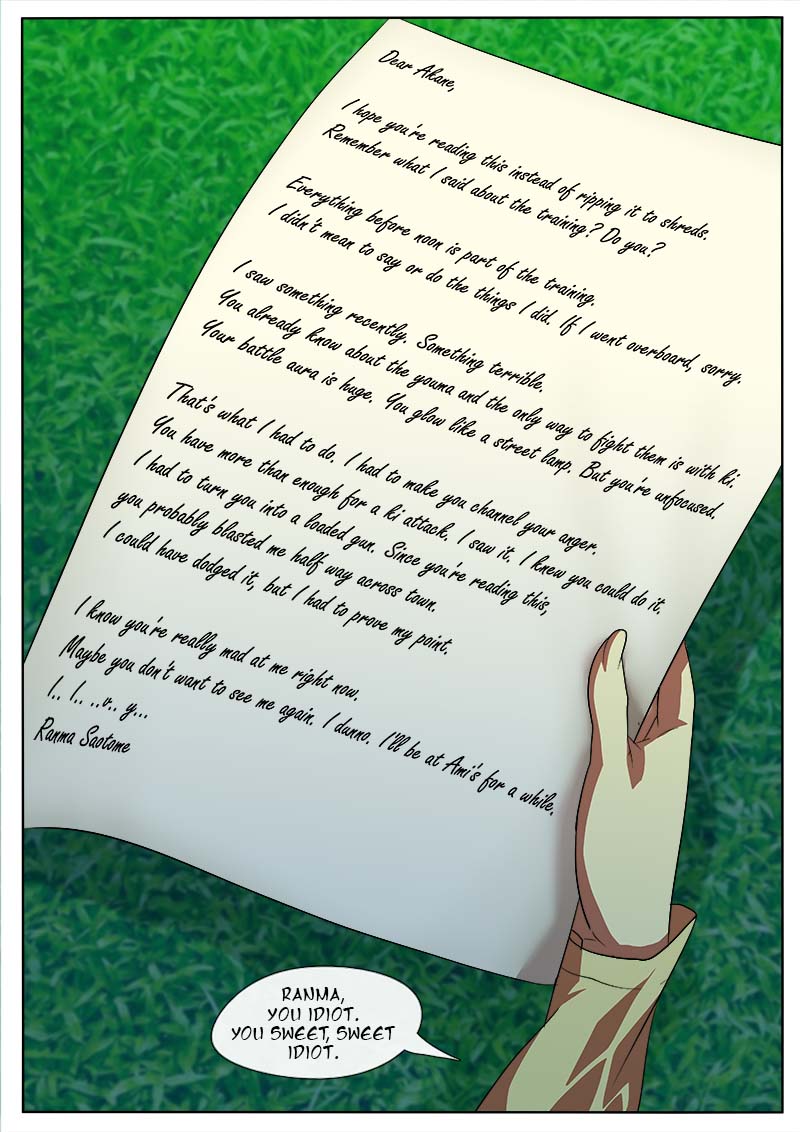 Dear Akane,
I hope you're reading this instead of ripping it to shreds.
Remember what I said about the training? Do you?
Everything before noon is part of the training.
I didn't mean to say or do the things I did. If I went overboard, sorry.
I saw something recently. Something terrible.
You already know about the youma and the only way to fight them is with ki.
Your battle aura is huge. You glow like a street lamp. But you're unfocused.
That's what I had to do. I had to make you channel your anger.
You have more than enough for a ki attack. I saw it. I knew you could do it.
I had to turn you into a loaded gun. Since you're reading this,
you probably blasted me half way across town.
I could have dodged it, but I had to prove my point.
I know you're really mad at me right now.
Maybe you don't want to see me again. I dunno. I'll be at Ami's for a while.
I.. l.. ..v.. y...
Ranma Saotome
RANMA,
YOU IDIOT.
YOU SWEET, SWEET
IDIOT.